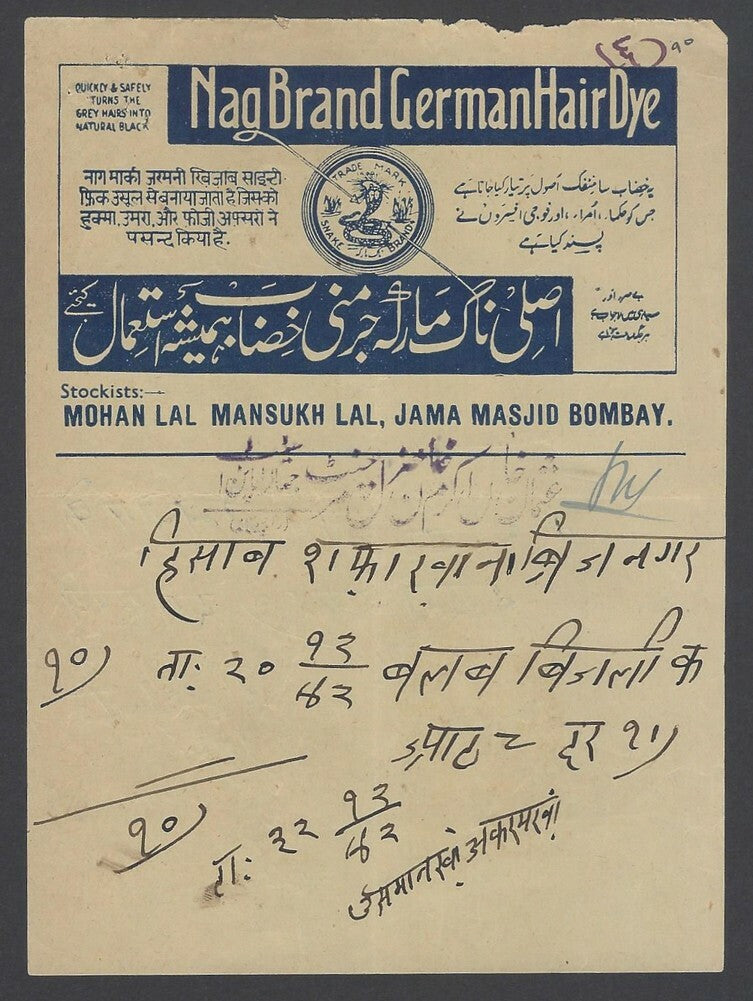 QUICKLY & SAFELY
TURNS THE
GREY HAIRS INTO
NATURAL BLACK
Nag Brand German Hair Dye
नाग मार्का जरमनी खिजाब साइन्टी
फ़िक उसूल से बनाया जाता है जिसको
हुक्मा, उमरा, और फ़ौजी अफ़्सरों ने
पसन्द किया है.
TRADE MARK
SNAKE BRAND
یہ خضاب سائنٹفک اصول پر تیار کیا جاتا ہے
جس کو حکما، امراء، اور فوجی افیسروں نے
پسند کیا ہے
اصلی ناگ مارکہ جرمنی خضاب ہمیشہ استعمال کیجئے
Stockists:—
MOHAN LAL MANSUKH LAL, JAMA MASJID BOMBAY.
हिसाब शफ़ाखाना बिजनगर
१०) ता: २० १२/४२ बलब बिजली के
आठ ८ दर १।)
१०)
ता: २२ १२/४२
उसमानखां अकरमखां